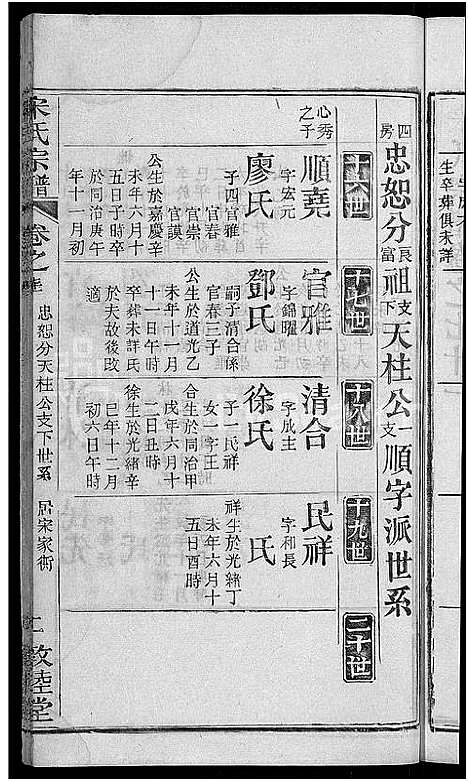 生卒葬俱未詳
四房忠恕分長富祖支下天柱公一支順字派世系
十六世
十七世
十八世
十九世
二十世
心秀之子
順堯
字宏元
廖氏
子四官雅
官春
官崇
官謨
公生於嘉慶辛
未年六月十
五日子時卒
於同治庚午
年十一月初
官雅
字錦曜
鄧氏
嗣子清合係
官春三子
公生於道光乙
未年十一月
十一日午時
卒葬未詳氏
於夫故後改
適
清合
字成主
徐氏
子一民祥
女一字王
合生於同治甲
戌年六月十
二日丑時
徐生於光緒辛
巳年十二月
初六日午時
民祥
字和長
氏
祥生於光緒丁
未年六月十
五日酉時
宋氏宗譜
卷之
忠恕分天柱公支下世系
居宋家衖
二
敦睦堂